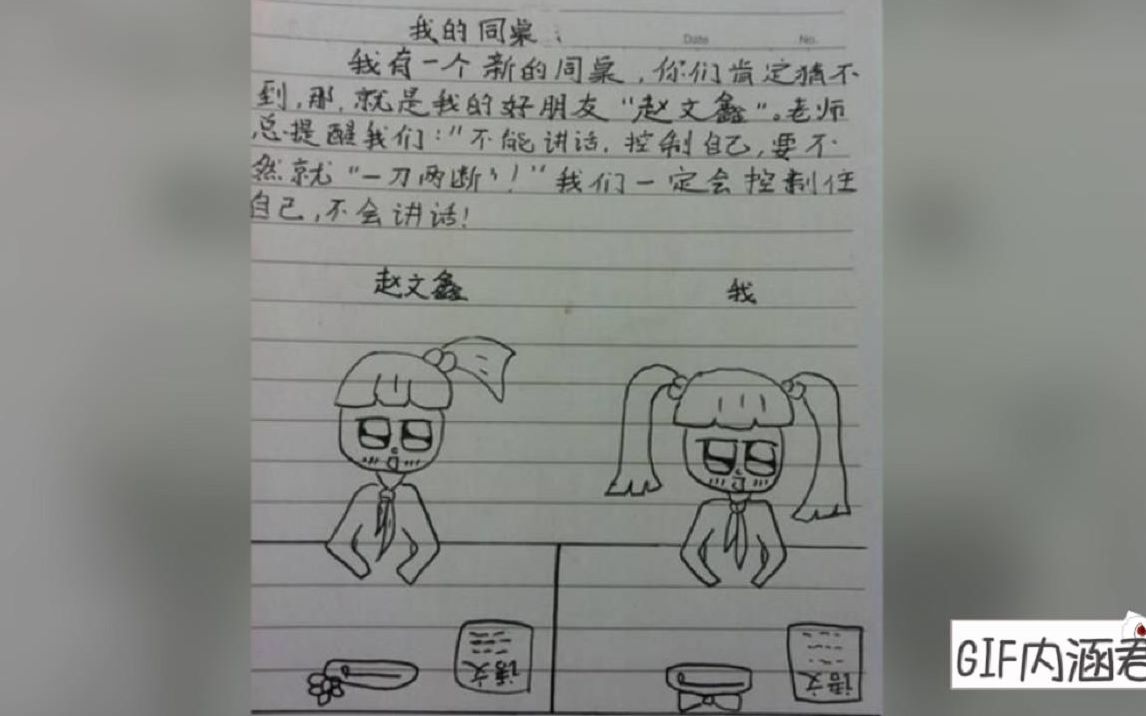 我的同桌
Date No.
我有一个新的同桌,你们肯定猜不
到,那,就是我的好朋友"赵文鑫"。老师
总提醒我们:"不能讲话,控制自己,要不
然就"一刀两断"!"我们一定会控制住
自己,不会讲话!
赵文鑫 我
语文 语文
GIF内涵君